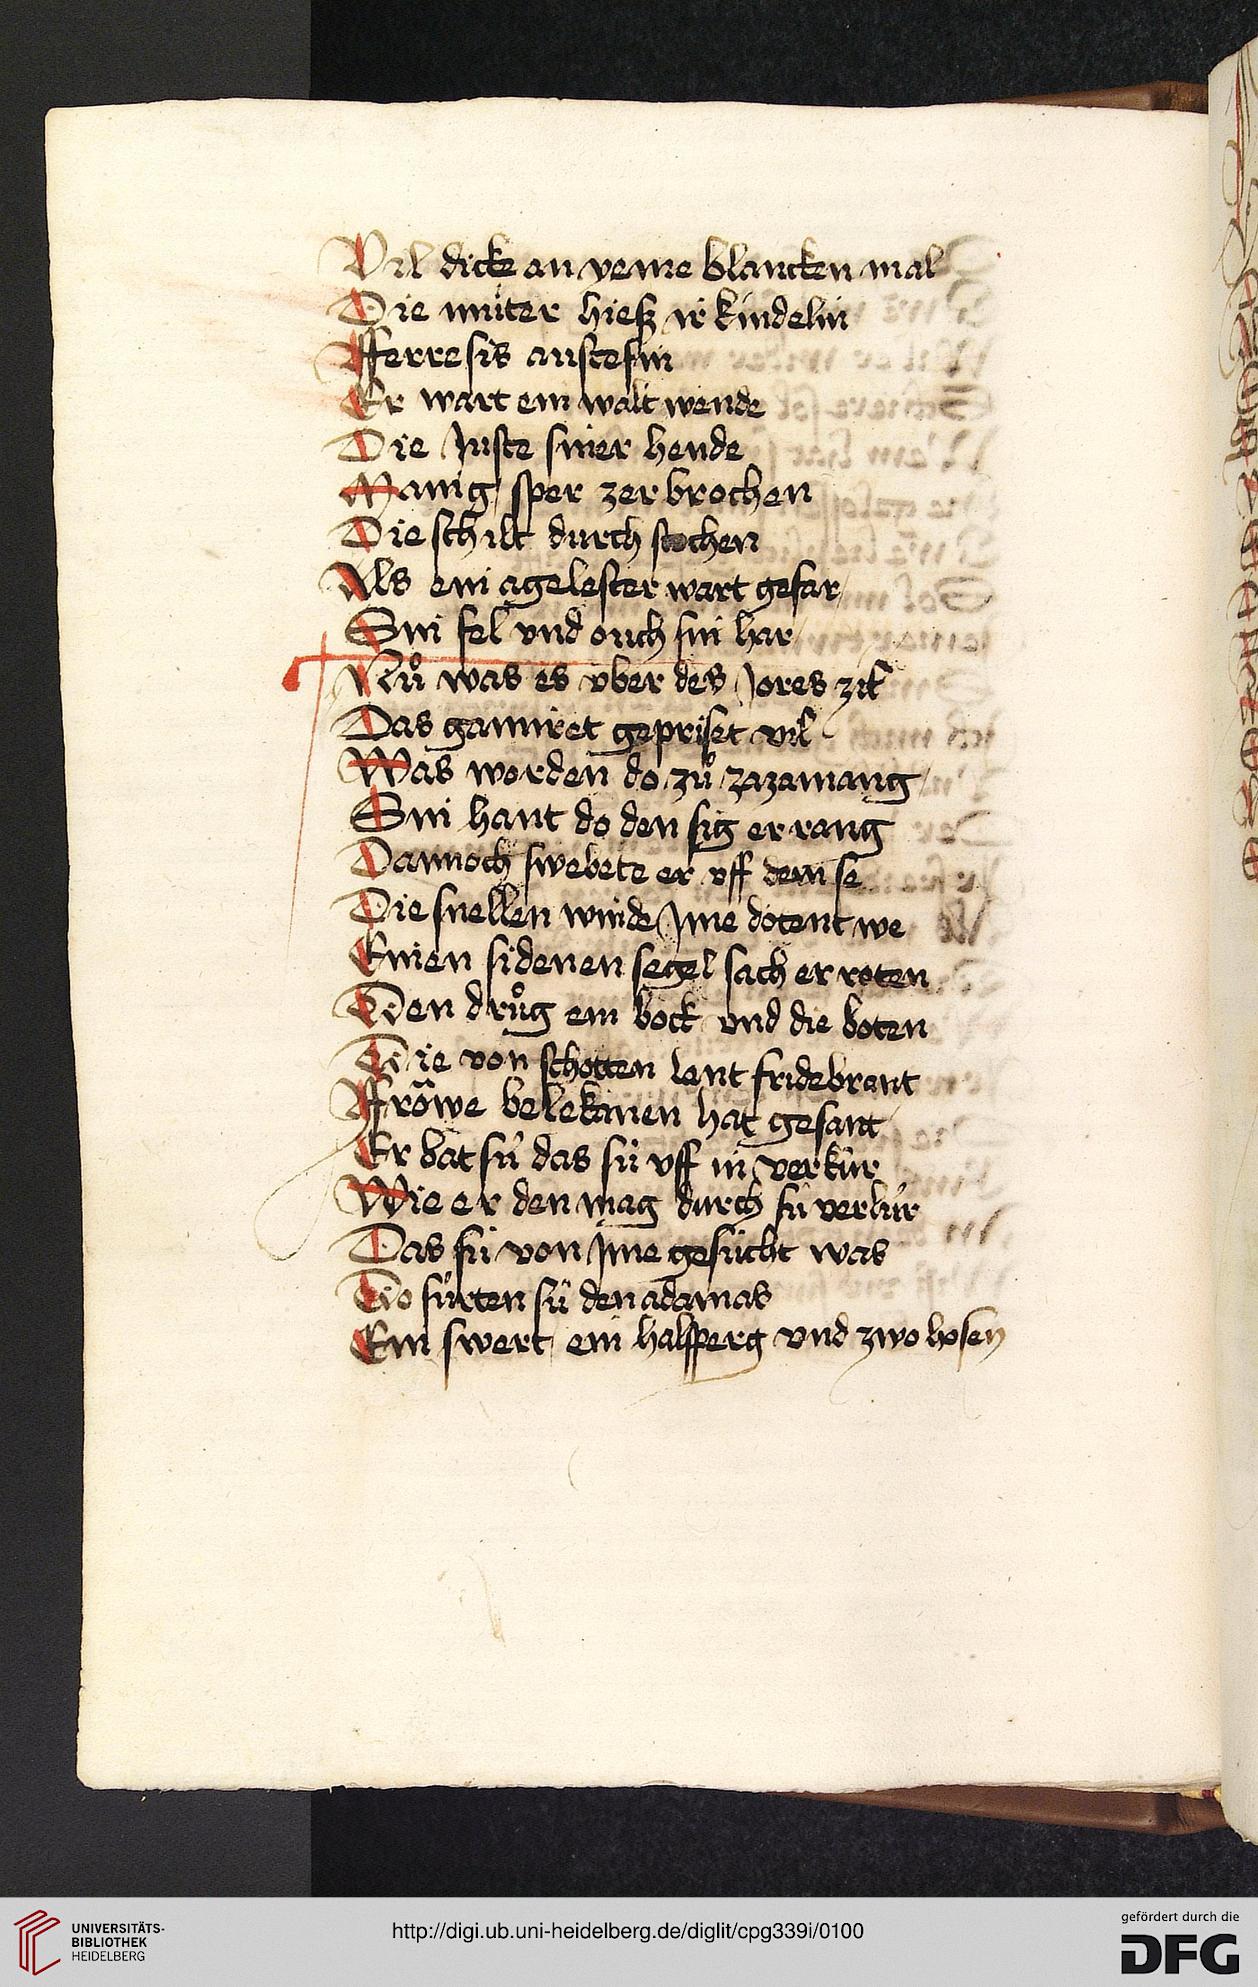 Vil dicke an yeme blancken mal
Die můter hiesz ir kindelin
Fferresis anstefin
Er wart ein walt wende
Die Juste siner hende
Manig sper zer brochen
Die schilt durch stochen
Als ein agelester wart gefar
Sin fel vnd ouch sin har
Nuͦ was es vber des Jores zil
Das gamiret gepriset vil
Was worden do zuͦ zazamang
Sin hant do den sig er rang
Dannoch swebete er vff dem se
Die snellen winde Jme dotent we
Einen sidenen segel sach er roten
Den druͦg ein bock vnd die boten
Die von schotten lant fridebrant
Ffröwe belekanen hat gesant
Er bat sü das sü vff in verkür
Wie er den mag durch sü verlür
Das sü von Jme gesücht was
Do fürten sü den adamas
Ein swert ein halsperg vnd zwo hosen
UNIVERSITÄTS-
BIBLIOTHEK
HEIDELBERG
http://digi.ub.uni-heidelberg.de/diglit/cpg339i/0100
gefördert durch die
DFG